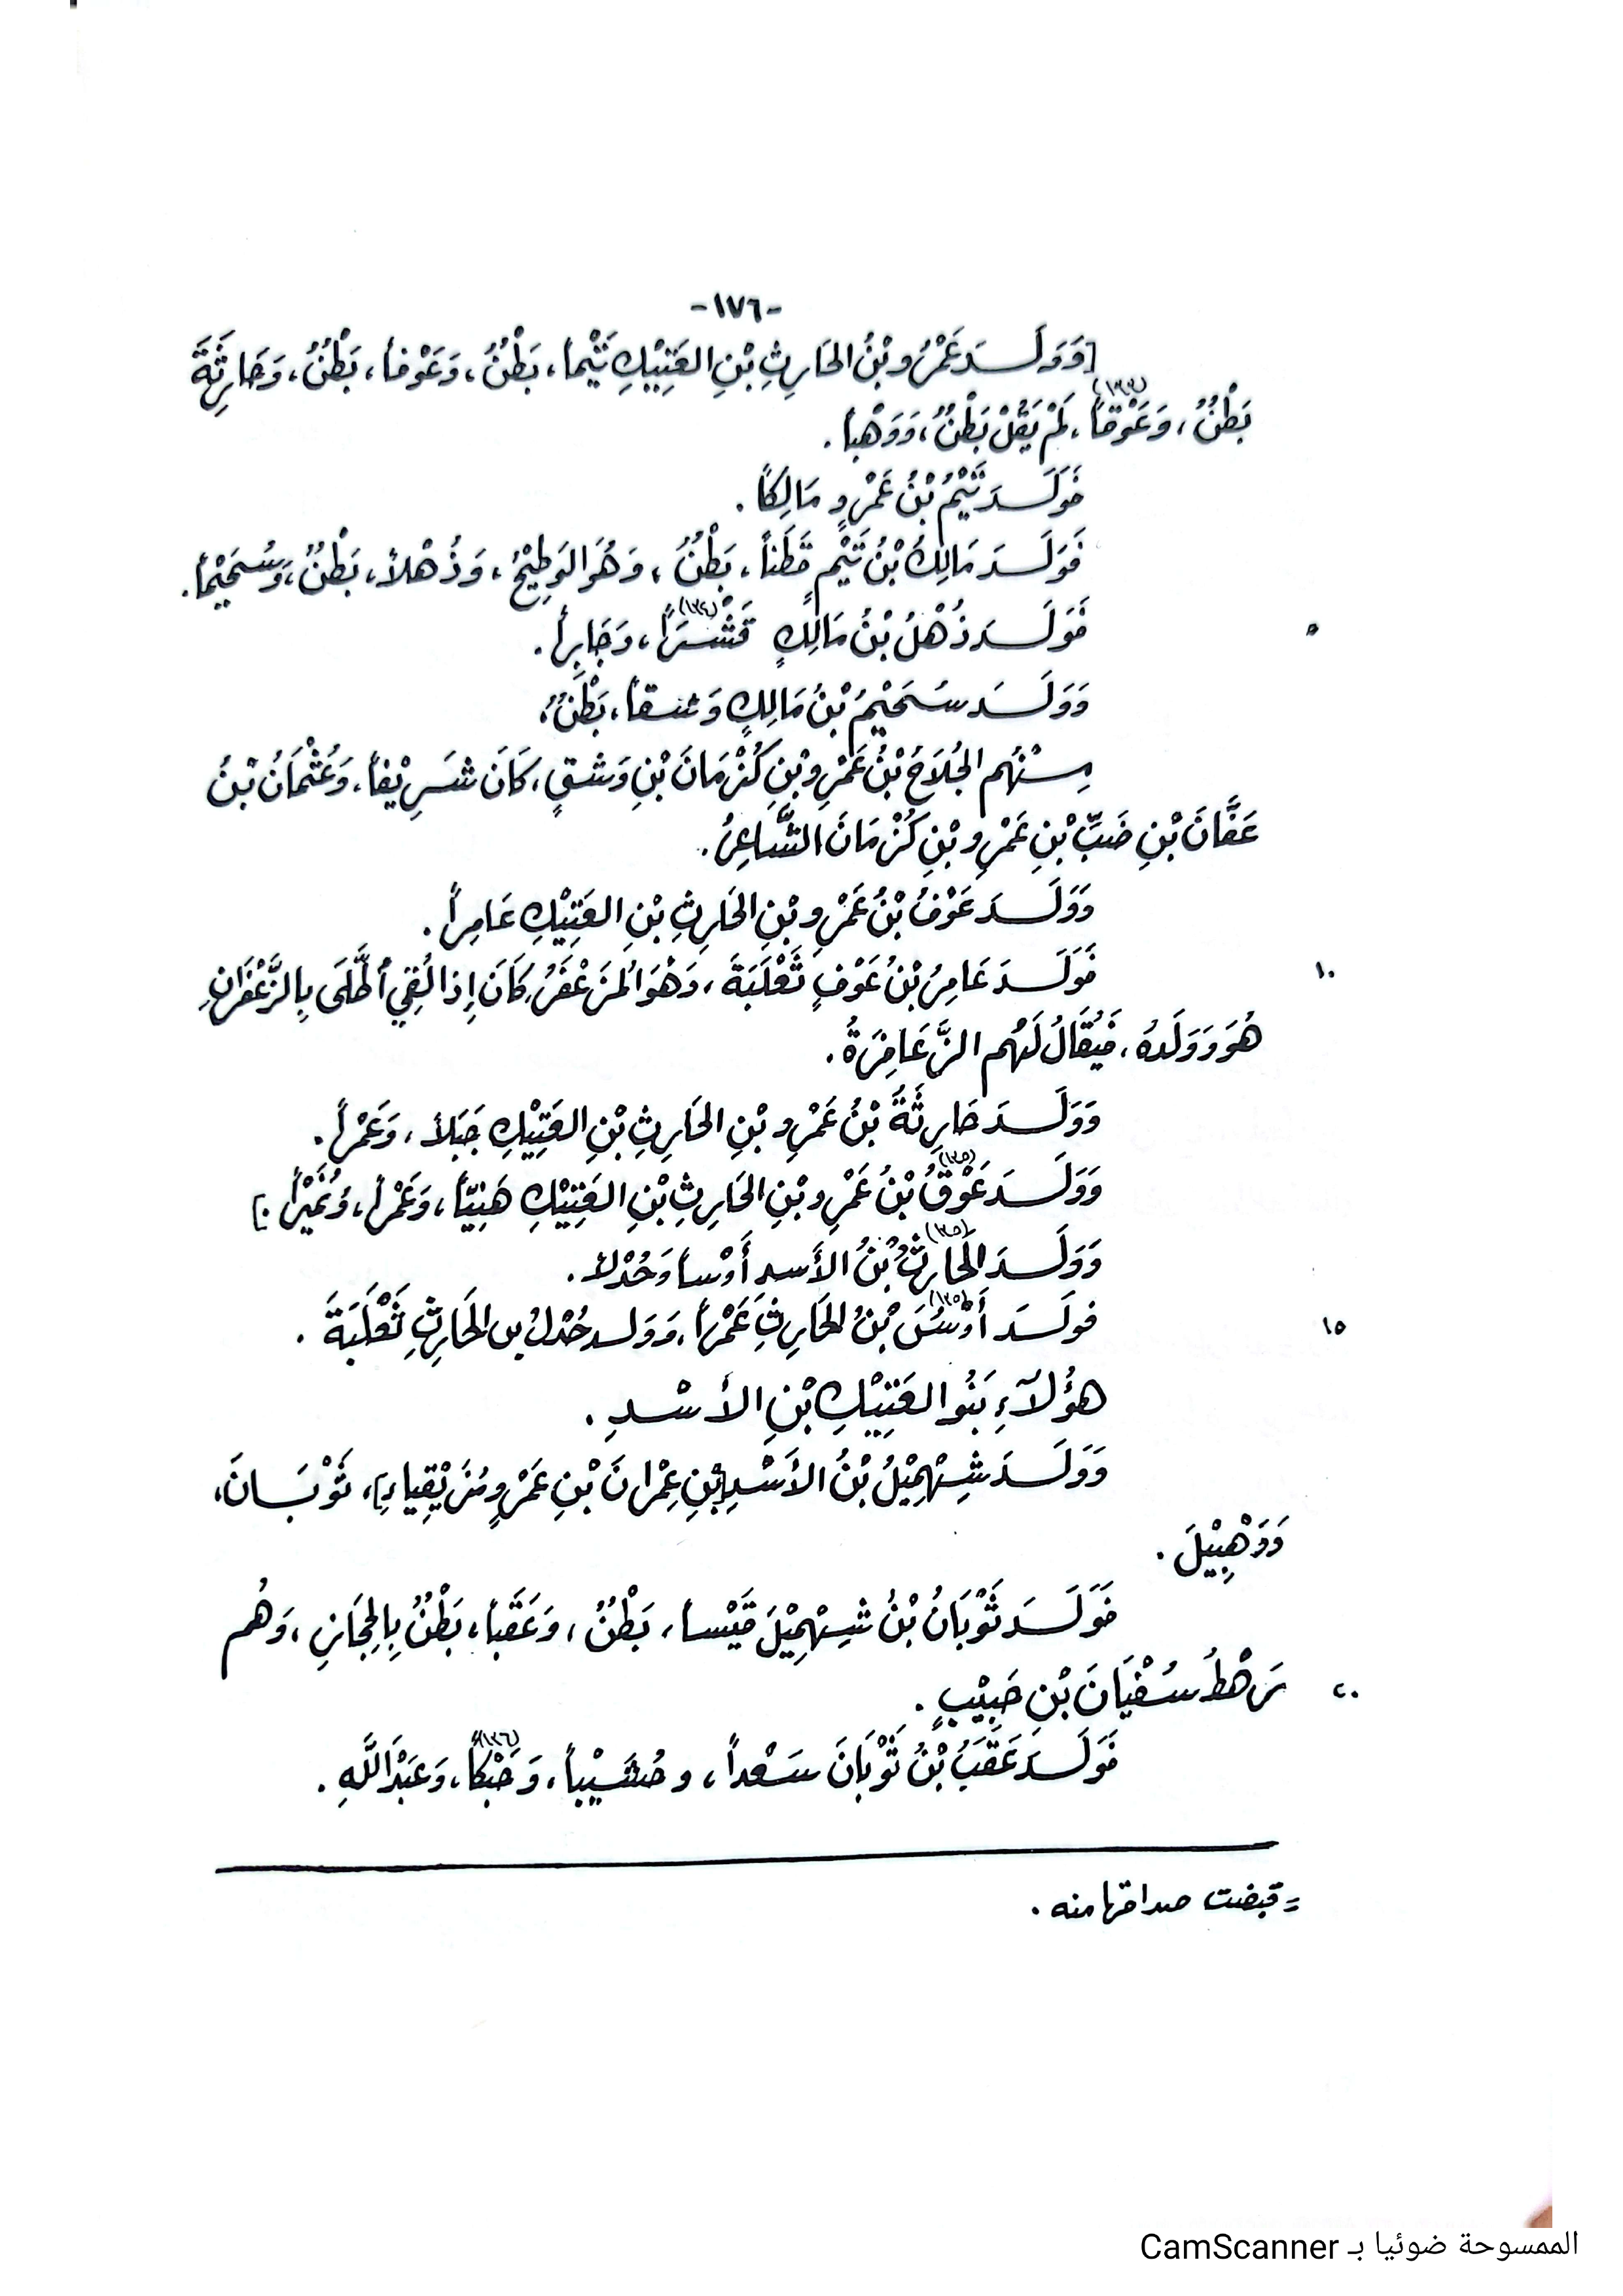 -١٧٦-
[وَوَلَــدَ عَمْرُو بْنُ الحَارِثِ بْنِ العَتِيْكِ تَيْماً، بَطْنٌ، وَعَوْفاً، بَطْنٌ، وَحَارِثَةَ
بَطْنٌ، وَعَوْقاً(١٣٣)، لَمْ يَقُلْ بَطْنٌ، وَوَهْباً.
فَوَلَــدَ تَيْمُ بْنُ عَمْرٍو مَالِكاً.
فَوَلَــدَ مَالِكُ بْنُ تَيْمٍ قَطَناً، بَطْنٌ، وَهُوَ الوَطِيْحُ، وَذُهْلاً، بَطْنٌ، وَسُحَيْماً.
٥ فَوَلَــدَ ذُهْلُ بْنُ مَالِكٍ قَشْــرَاً(١٣٤)، وَجَابِراً.
وَوَلَــدَ سُحَيْمُ بْنُ مَالِكٍ وَشقاً، بَطْنٌ،
مِــنْهُم الجُلَاحُ بْنُ عَمْرِو بْنِ كُزْمَانَ بْنِ وَشقٍ، كَانَ شَرِيْفاً، وَعُثْمَانُ بْنُ
عَفَّانَ بْنِ ضَبِّ بْنِ عَمْرِو بْنِ كُزْمَانَ الشَّاعِرُ.
وَوَلَــدَ عَوْفُ بْنُ عَمْرِو بْنِ الحَارِثِ بْنِ العَتِيْكِ عَامِراً.
١٠ فَوَلَــدَ عَامِرُ بْنُ عَوْفٍ ثَعْلَبَةَ، وَهُوَ المُزَعْفَرُ، كَانَ إِذا لُقِي أطَّلَى بِالزَّعْفَرَانِ
هُوَ وَوَلَدُهُ، فَيُقَالُ لَهُم الزَّعَافِرَةُ.
وَوَلَــدَ حَارِثَةُ بْنُ عَمْرِو بْنِ الحَارِثِ بْنِ العَتِيْكِ جَبَلاً، وَعَمْراً.
وَوَلَــدَ عَوْقُ(١٣٥) بْنُ عَمْرِو بْنِ الحَارِثِ بْنِ العَتِيْكِ هَنِيّاً، وَعَمْراً، وَنُمَيْراً.]
وَوَلَــدَ الحَارِثُ(١٣٥) بْنُ الأَسد أَوْساً وَحُدْلا.
١٥ فولَــدَ أَوْسُ(١٣٥) بْنُ الحَارِثِ عَمْراً، وَوَلــد حُدْلُ بن الحَارِثِ ثَعْلَبَةَ.
هؤُلَآءِ بَنُو العَتِيْكِ بْنِ الأَسْــدِ.
وَوَلَــدَ شِهْمِيْلُ بْنُ الأَسْدِ [بْنِ عِمْرانَ بْنِ عَمْرٍو مُزَيْقِياءِ]، ثَوْبَــانَ،
وَوَهْبِيْلَ.
فَوَلَــدَ ثَوْبَانُ بْنُ شِهْمِيْلَ قَيْساً، بَطْنٌ، وَعَقَباً، بَطْنٌ بِالحِجَازِ، وَهُم
٢٠ رَهْطُ سُفْيَانَ بْنِ حَبِيْبٍ.
فَوَلَــدَ عَقَبُ بْنُ ثَوْبَانَ سَعْداً، وحُشَيْباً، وَحَبْكاً(١٣٦)، وَعَبْدَاللَّهِ.
= قبضت صداقها منه.
الممسوحة ضوئيا بـ CamScanner